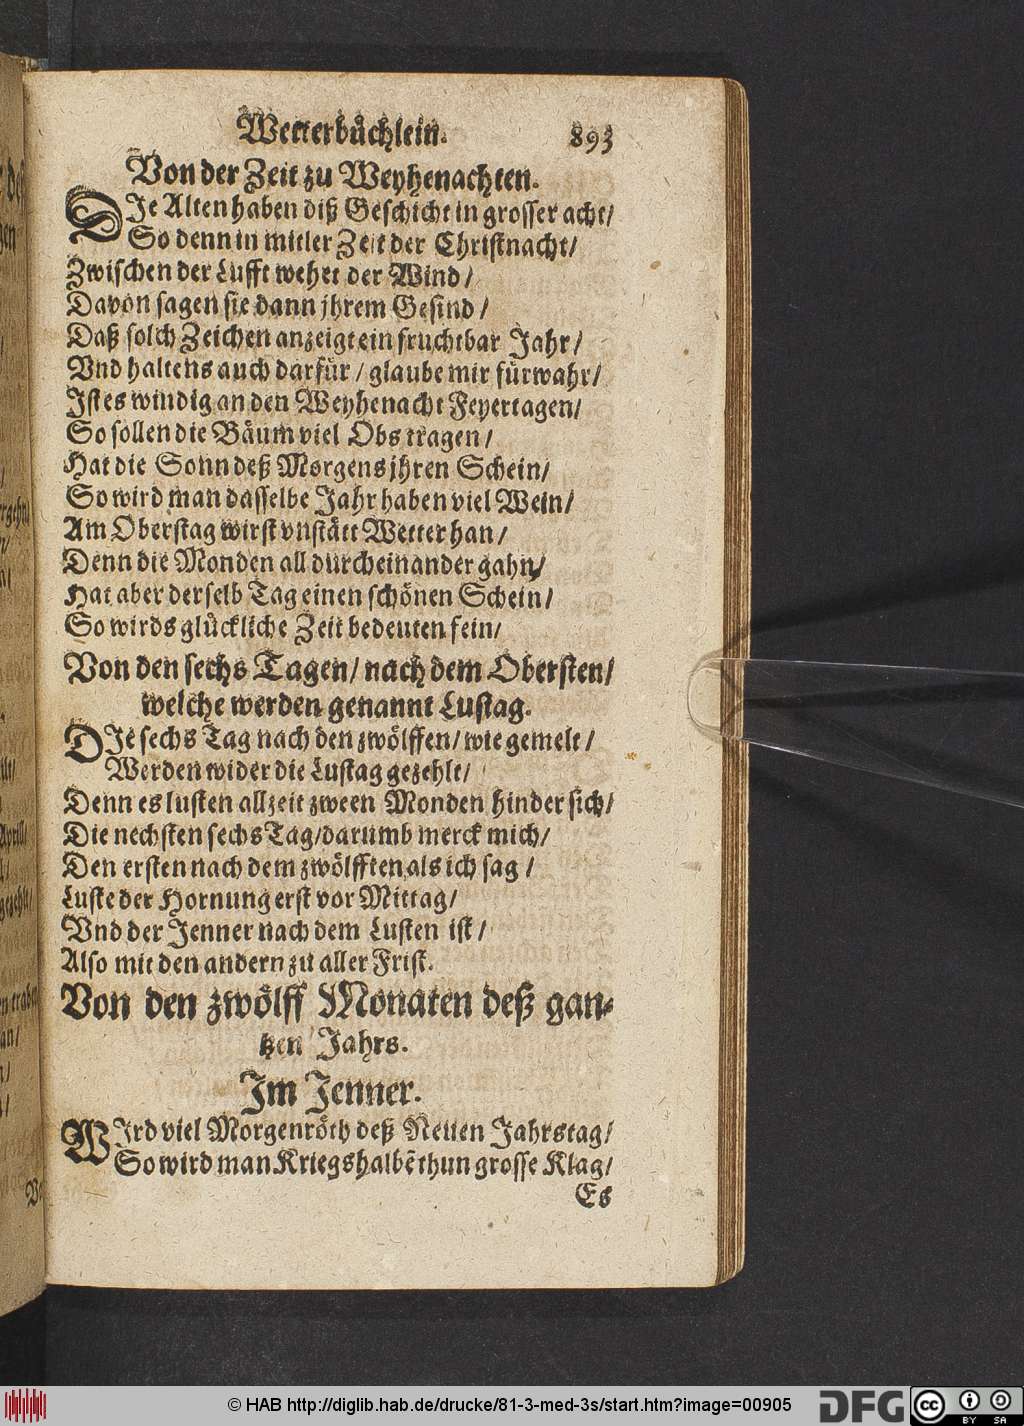 Wetterbüchlein. 893
Von der Zeit zu Weyhenachten.
DJe Alten haben diß Geschicht in grosser acht/
So denn in mitler Zeit der Christnacht/
Zwischen der Lufft wehet der Wind/
Davon sagen sie dann jhrem Gesind/
Daß solch Zeichen anzeigt ein fruchtbar Jahr/
Vnd haltens auch darfür/ glaube mir fürwahr/
Jst es windig an den Weyhenacht Feyertagen/
So sollen die Bäum viel Obs tragen/
Hat die Sonn deß Morgens jhren Schein/
So wird man dasselbe Jahr haben viel Wein/
Am Oberstag wirst vnstätt Wetter han/
Denn die Monden all durcheinander gahn/
Hat aber derselb Tag einen schönen Schein/
So wirds glückliche Zeit bedeuten fein/
Von den sechs Tagen/ nach dem Obersten/
welche werden genannt Lustag.
DJe sechs Tag nach den zwölffen/ wie gemelt/
Werden wider die Lustag gezehlt/
Denn es lusten allzeit zween Monden hinder sich/
Die nechsten sechs Tag/ darumb merck mich/
Den ersten nach dem zwölfften als ich sag/
Luste der Hornung erst vor Mittag/
Vnd der Jenner nach dem Lusten ist/
Also mit den andern zu aller Frist.
Von den zwölff Monaten deß gan-
tzen Jahrs.
Jm Jenner.
WJrd viel Morgenröth deß Neuen Jahrstag/
So wird man Kriegshalbẽ thun grosse Klag/
Es
© HAB http://diglib.hab.de/drucke/81-3-med-3s/start.htm?image=00905
DFG
cc
BY SA